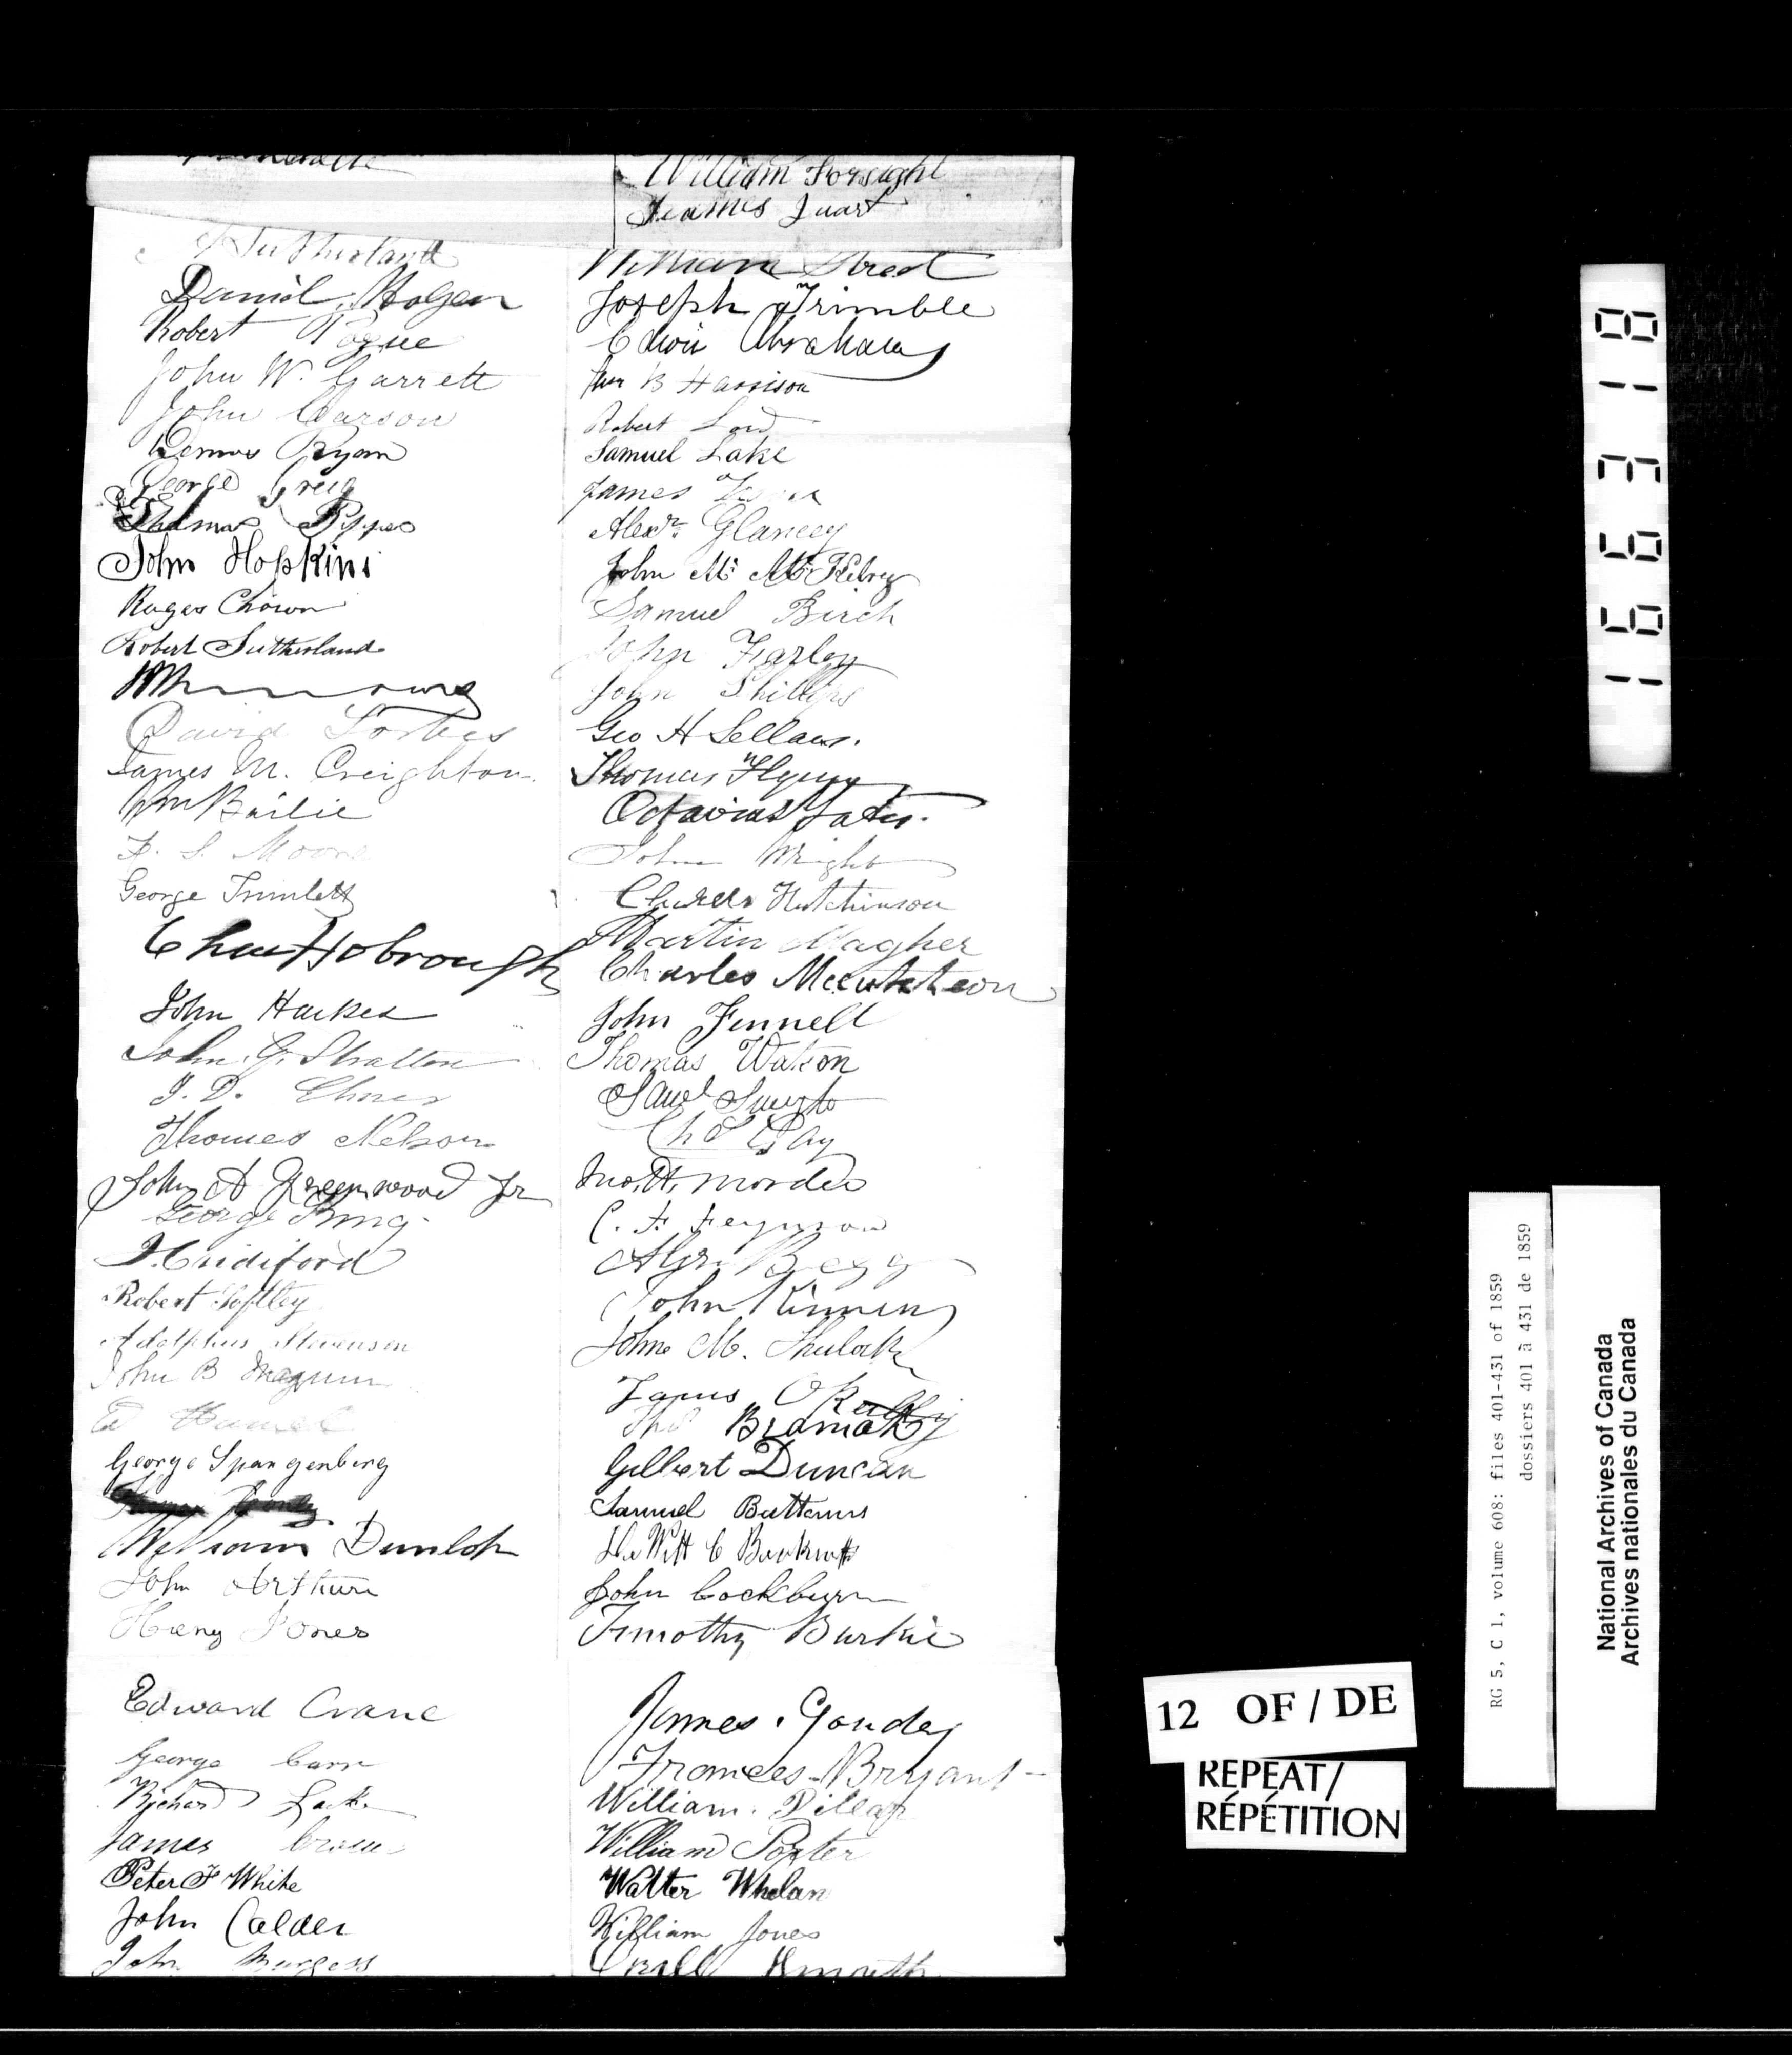 William Forsight
James Juart
Sutherland
Daniel Hogan
Robert Pogue
John W. Garrett
John Carson
Ryan
George Greig
Thomas Pepper
John Hopkins
Roger Chown
Robert Sutherland
David Forbes
James M. Creighton
Wm Bailie
F. S. Moore
George Trimlett
John Hackes
John G. Stratton
J. D.
Thomas Nelson
John A Greenwood Jr
George King
Robert Softley
Adolphus Stevenson
John B
Ed Hamel
George Spangenberg
William Dunlop
John Arthur
Harry Jones
Edward Crane
George Carr
Richard
James
Peter F White
John Calder
John Burgess
William Street
Joseph Trimble
Edwin Abraham
B Harrison
Robert Lord
Samuel Lake
James
Alexr Glancey
John Mc
Samuel Birch
John Farley
John Phillips
Geo H Sellars.
Thomas Flynn
Octavius Yates.
John Wright
Charles Hutchinson
Martin Magher
Charles Mccutcheon
John Fennell
Thomas Watson
Saml
Chs Gay
Jno. H. Morden
C. F. Ferguson
Begg
John Kinney
John M.
James O'Reilly
Gilbert Duncan
Samuel Buttams
DeWitt C
John Cockburn
Timothy Burke
James Goudey
Frances Bryant
William
William Porter
Walter Whelan
William Jones
166318
12 OF / DE
REPEAT/
RÉPÉTITION
RG 5, C 1, volume 608: files 401-431 of 1859
dossiers 401 à 431 de 1859
National Archives of Canada
Archives nationales du Canada